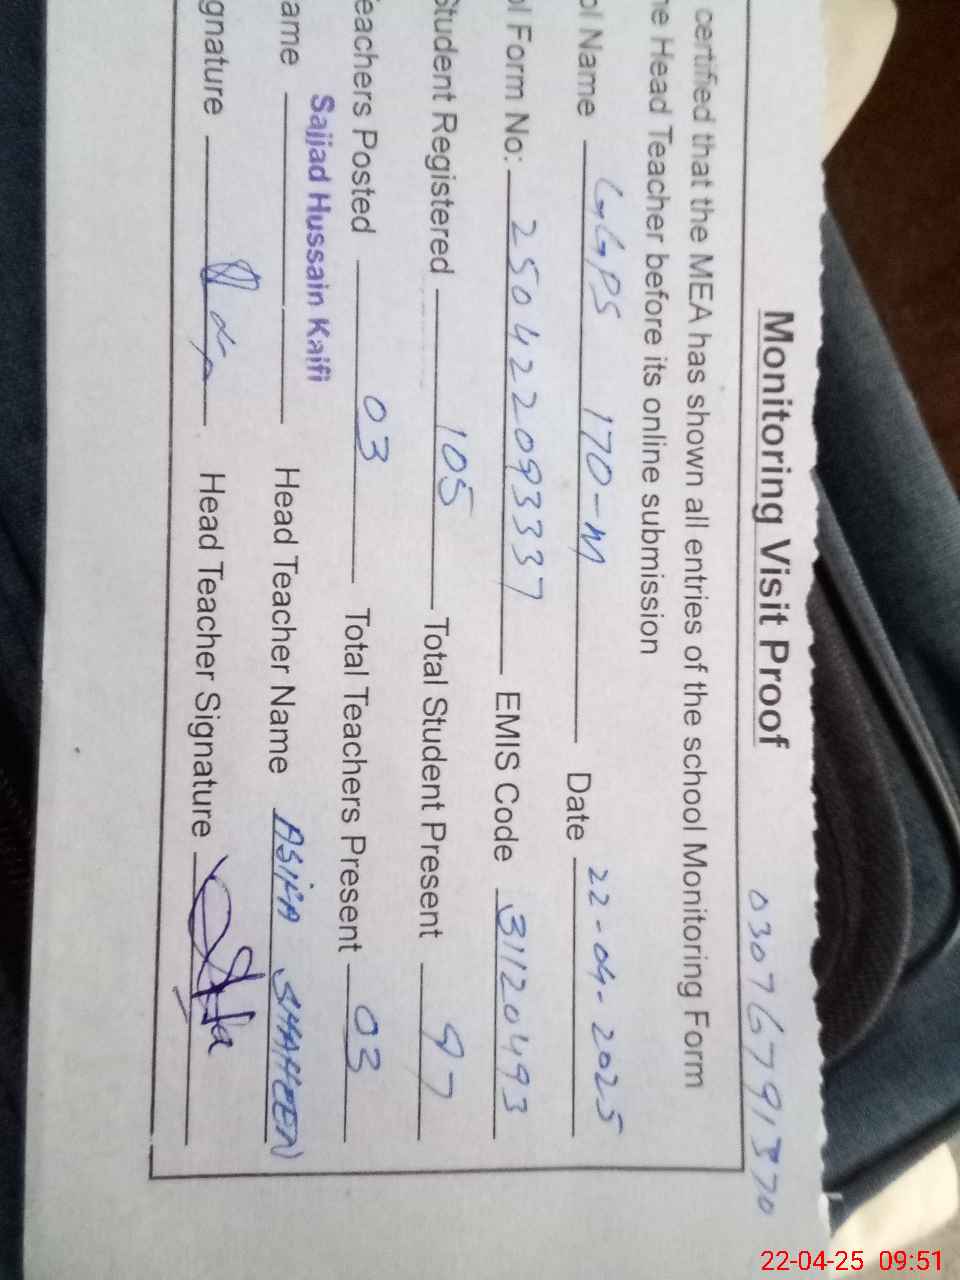 030767791370
Monitoring Visit Proof
certified that the MEA has shown all entries of the school Monitoring Form
he Head Teacher before its online submission
ol Name GGPS 170-M Date 22-04-2025
ol Form No: 2504220933 37 EMIS Code 31120493
Student Registered 105 Total Student Present 97
eachers Posted 03 Total Teachers Present 03
Sajjad Hussain Kaifi
ame Head Teacher Name ASIMA SHAHEEN
gnature Head Teacher Signature
22-04-25 09:51